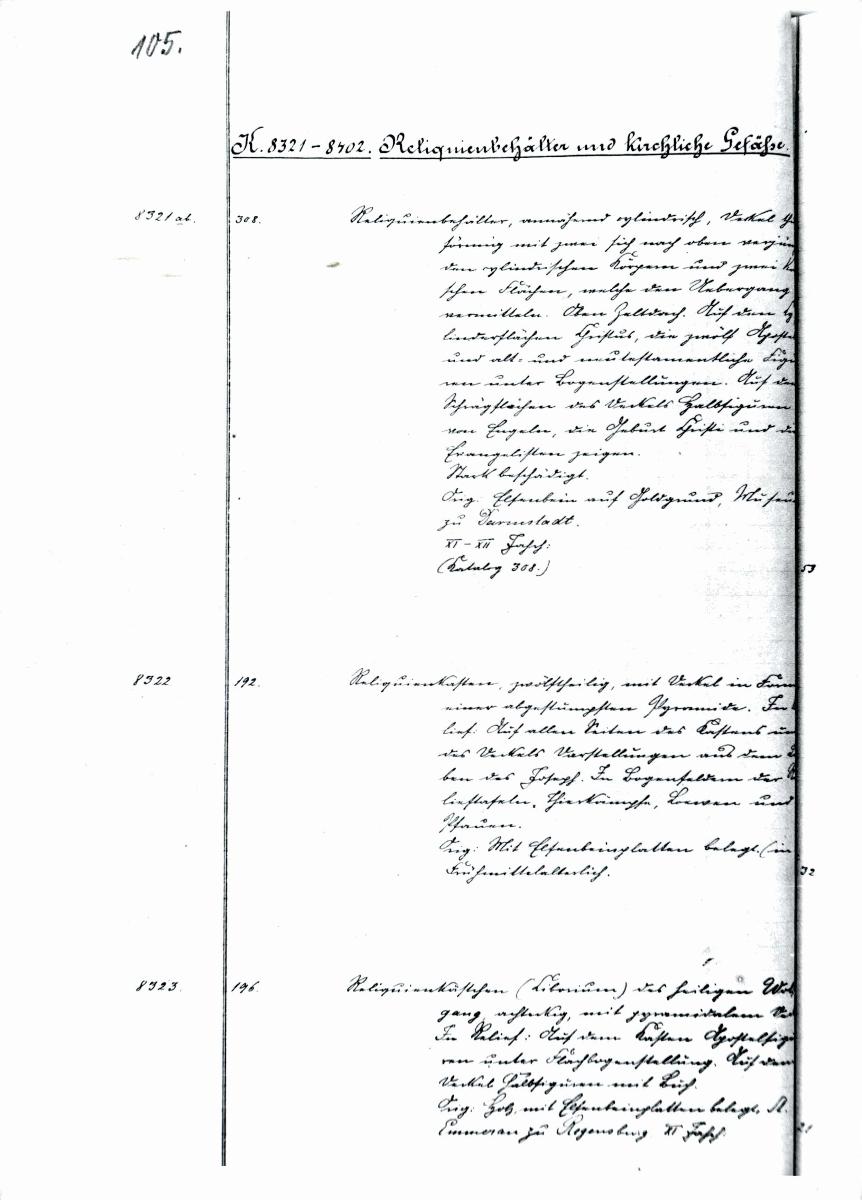 105.
K. 8321-8402. Reliquienbehälter und kirchliche Gefässe.
8321 ab. 308. Reliquienbehälter, annähernd cylindrisch, Deckel
förmig mit zwei sich nach oben verjün
den cylindrischen Körpern und zwei
schen Flächen, welche den Uebergang
vermitteln. Oben Zeltdach. Auf den Cy
linderflächen Christus, die zwölf Aposte
und alt- und neutestamentliche Figu
ren unter Bogenstellungen. Auf den
Schrägflächen des Deckels Halbfiguren
von Engeln, die Geburt Christi und di
Evangelisten zeigen.
Stark beschädigt.
Orig. Elfenbein auf Goldgrund, Museu
zu Darmstadt.
XI-XII Jahrh:
(Katalog 308.) 53
8322 192. Reliquienkasten, zwölftheilig, mit Deckel in Form
einer abgestumpften Pyramide. In
lief. Auf allen Seiten des Kastens un
des Deckels Darstellungen aus dem
ben des Joseph. In Bogenfeldern der
lieftafeln, Thierkämpfe, Loewen und
Pfauen.
Orig: Mit Elfenbeinplatten belegt. (in
Frühmittelalterlich. 32
8323 196. Reliquienkästchen (Ciborium) des heiligen Wolf
gang, achteckig, mit pyramidalem Dec
In Relief: Auf dem Kasten Apostelfigu
ren unter Flachbogenstellung. Auf dem
Deckel Halbfiguren mit Buch.
Orig: Holz mit Elfenbeinplatten belegt. St.
Emmeran zu Regensburg XI Jahrh. 21